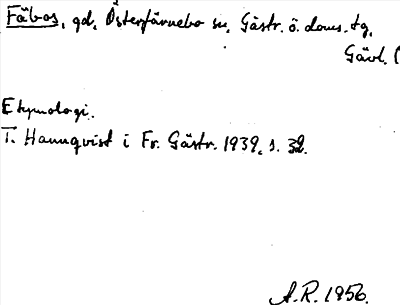 Fäbos, gd, Österfärnebo sn, Gästr. ö. doms. tg,
Gävl. (
Etymologi.
T. Hannqvist i Fr. Gästr. 1939, s. 32.
A.R. 1956.